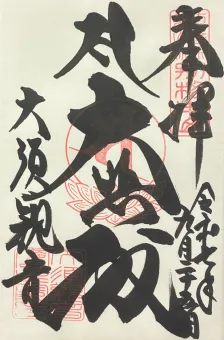 奉拝
令和七年
九月二十日
大悲殿
大須観音